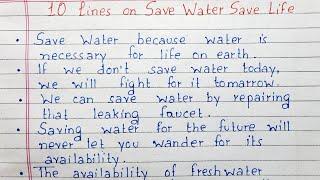 10 Lines on Save Water Save Life
• Save Water because water is
necessary for life on earth.
• If we don't save water today,
we will fight for it tomorrow.
• We can save water by repairing
that leaking faucet.
• Saving water for the future will
never let you wander for its
availability.
• The availability of freshwater